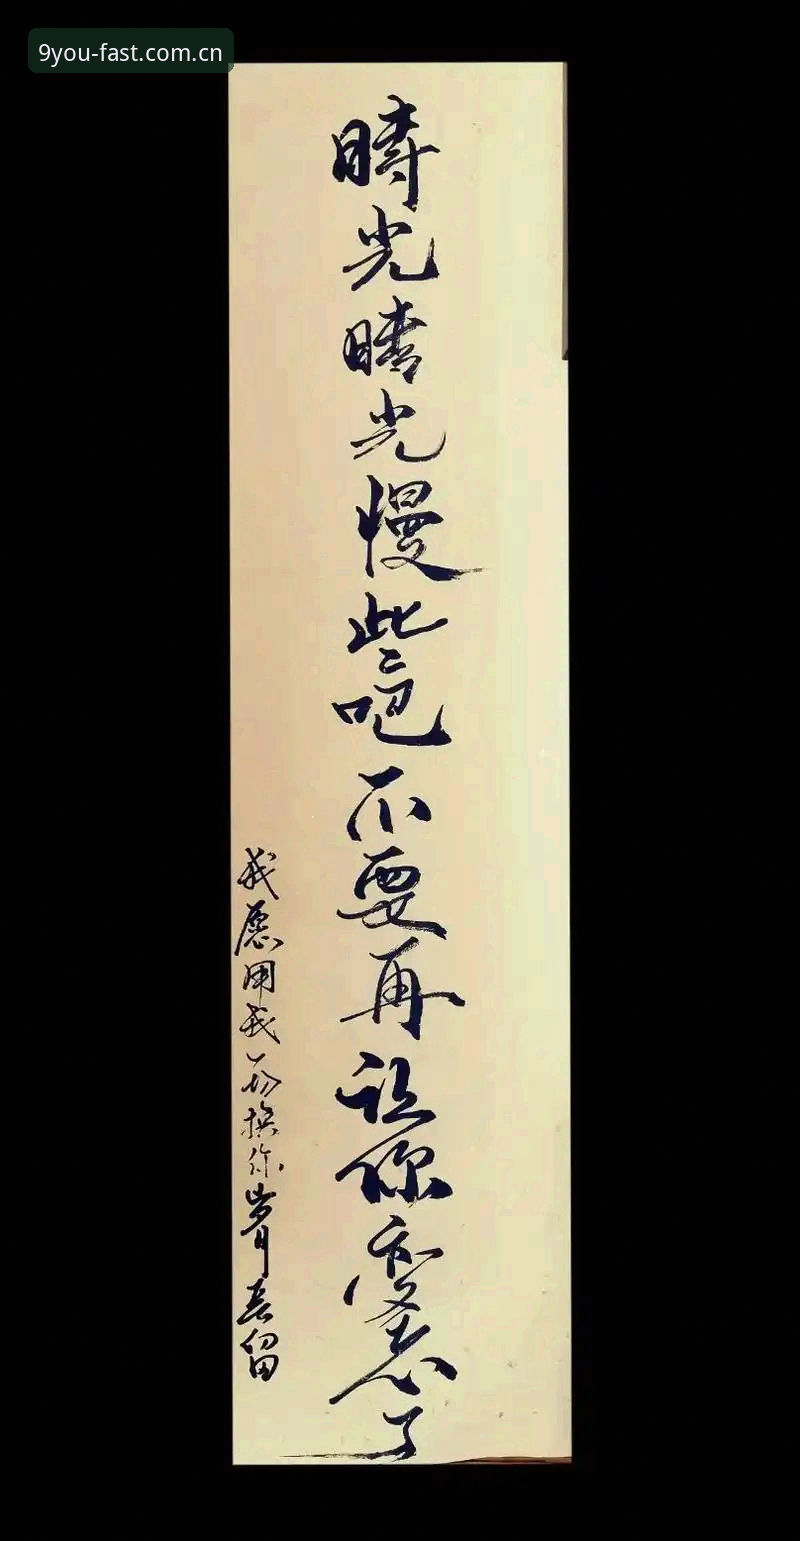 9you-fast.com.cn
時光時光慢些吧不要再让你变老了
我愿用我一切换你岁月长留